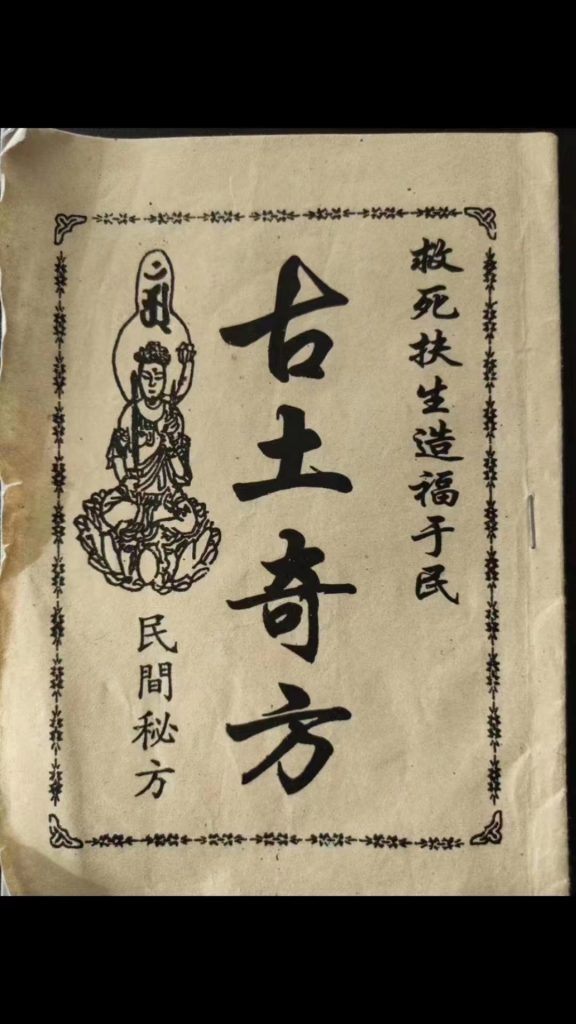 救死扶生造福于民
古土奇方
民間秘方